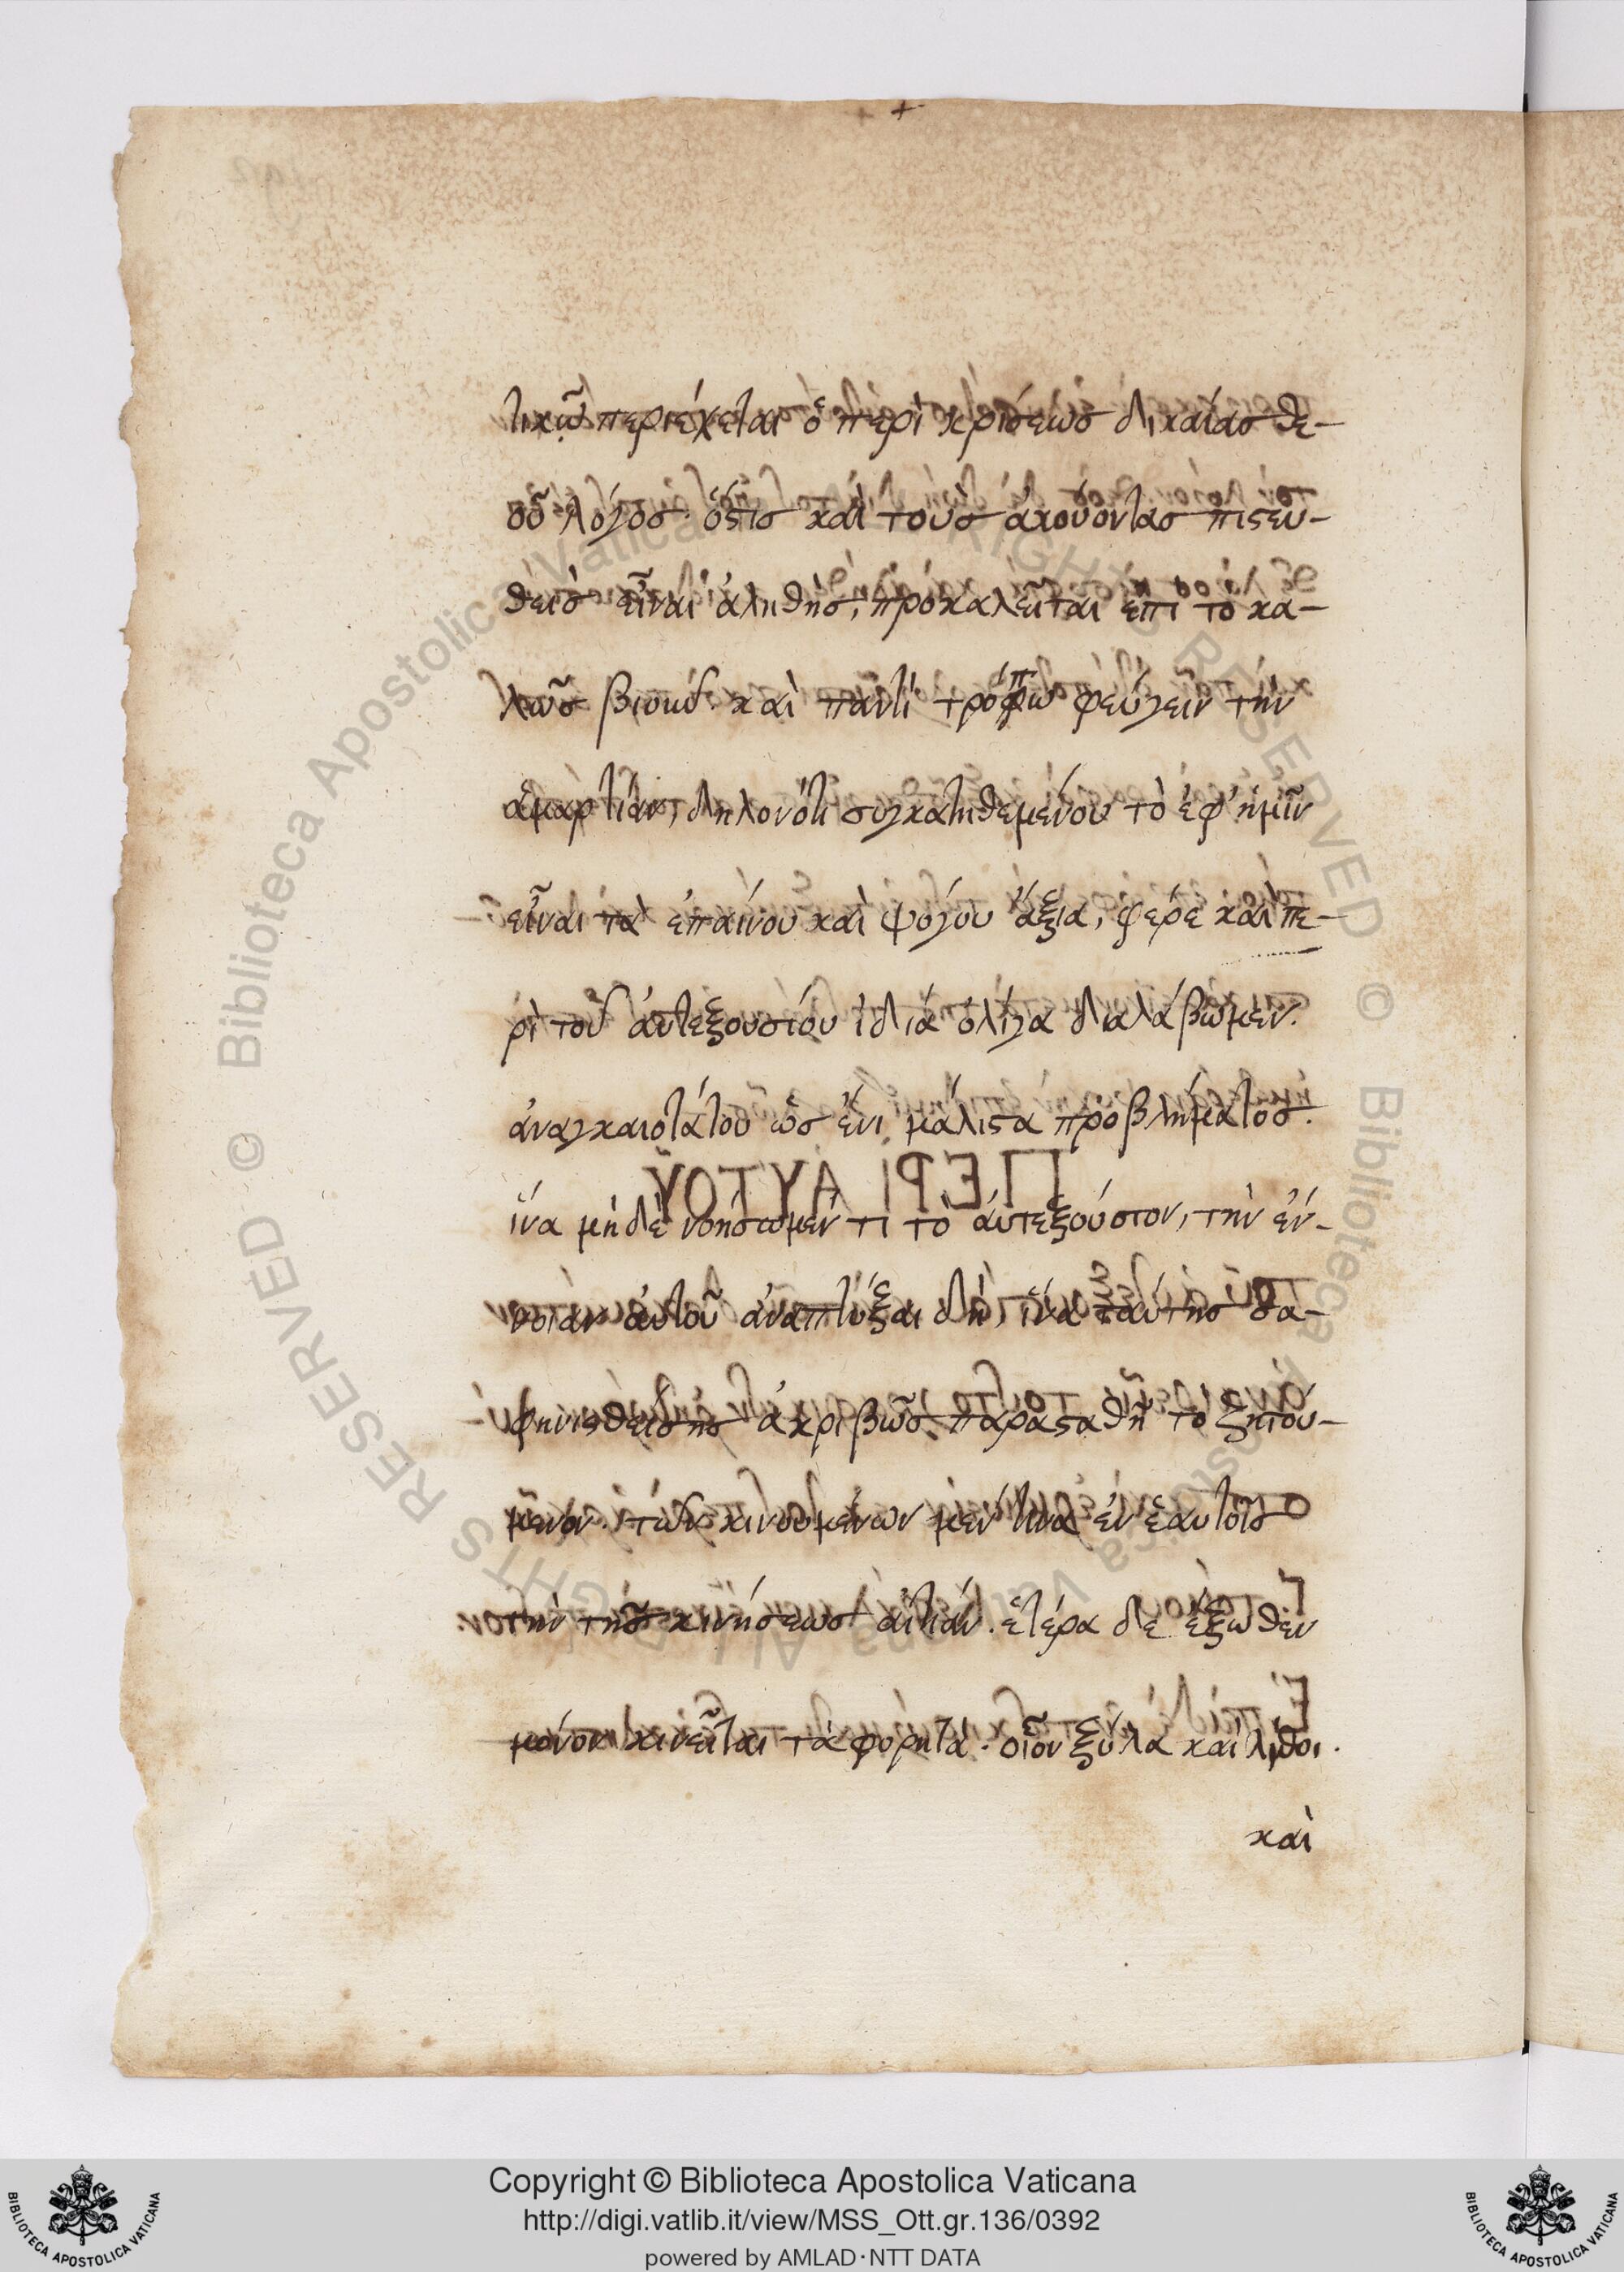 τικῷ περιέχεται ὁ περὶ κρίσεως δικαίας θε-
οῦ λόγος· ὅστις καὶ τοὺς ἀκούοντας πιστευ-
θεὶς εἶναι ἀληθὴς, προκαλεῖται ἐπὶ τὸ κα-
λῶς βιοῦν· καὶ παντὶ τρόπω φεύγειν τὴν
ἁμαρτίαν, δηλονότι συγκατηθεμένου τὸ ἐφ' ἡμῖν
εἶναι τὰ ἐπαίνου καὶ ψόγου ἄξια, φέρε καὶ πε-
ρὶ τοῦ αὐτεξουσίου ἰδιά ὀλίγα διαλάβωμεν.
ἀναγκαιοτάτου ὡς ἔνι μάλιστα προβλήματος.
ἵνα μὴ δὲ νοήσωμεν τι τὸ αὐτεξούσιον, τὴν ἐν-
νοιαν αὐτοῦ ἀναπτύξαι δεῖ, ἵνα ταύτης σα-
φηνισθείσης ἀκριβῶς παρασταθῆ τὸ ζητού-
μενον. τῶν κινουμένων μέν τινα ἐν ἑαυτοῖς
τὴν τῆς κινήσεως αἰτίαν. ἑτέρα δε ἔξωθεν
μόνον κινεῖται τὰ φορητὰ. οἷον ξύλα καὶ λίθοι.
καὶ
Copyright © Biblioteca Apostolica Vaticana
http://digi.vatlib.it/view/MSS_Ott.gr.136/0392
powered by AMLAD·NTT DATA
BIBLIOTECA APOSTOLICA VATICANA
BIBLIOTECA APOSTOLICA VATICANA
© Biblioteca Apostolica Vaticana ALL RIGHTS RESERVED